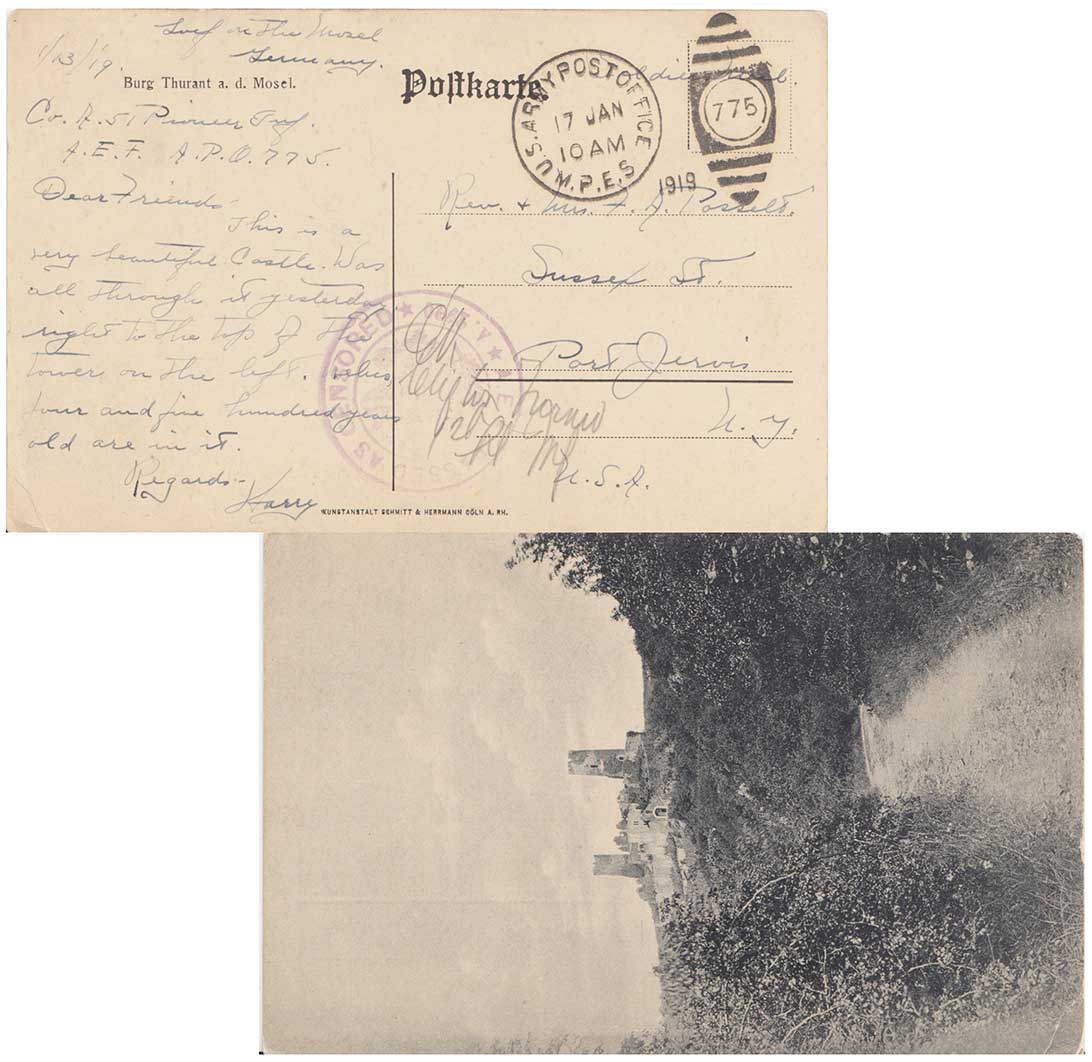 Loef on the Mosel
Germany.
1/13/19.
Burg Thurant a. d. Mosel.
Co. A. 51 Pioneer Inf.
A.E.F. A.P.O. 775.
Dear Friends
This is a
very beautiful Castle. Was
all through it yesterday
right to the top of the
tower on the left.
four and five hundred years
old are in it.
Regards-
Harry
KUNSTANSTALT SCHMITT & HERRMANN CÖLN A. RH.
Postkarte.
U.S. ARMY POST OFFICE
17 JAN
10 AM
M.P.E.S
1919
775
Soldiers Mail.
Rev. & Mrs. F. A. Posselt.
Sussex St.
Port Jervis
N.Y.
U.S.A.
OK
PASSED AS CENSORED ★ A.E.F.